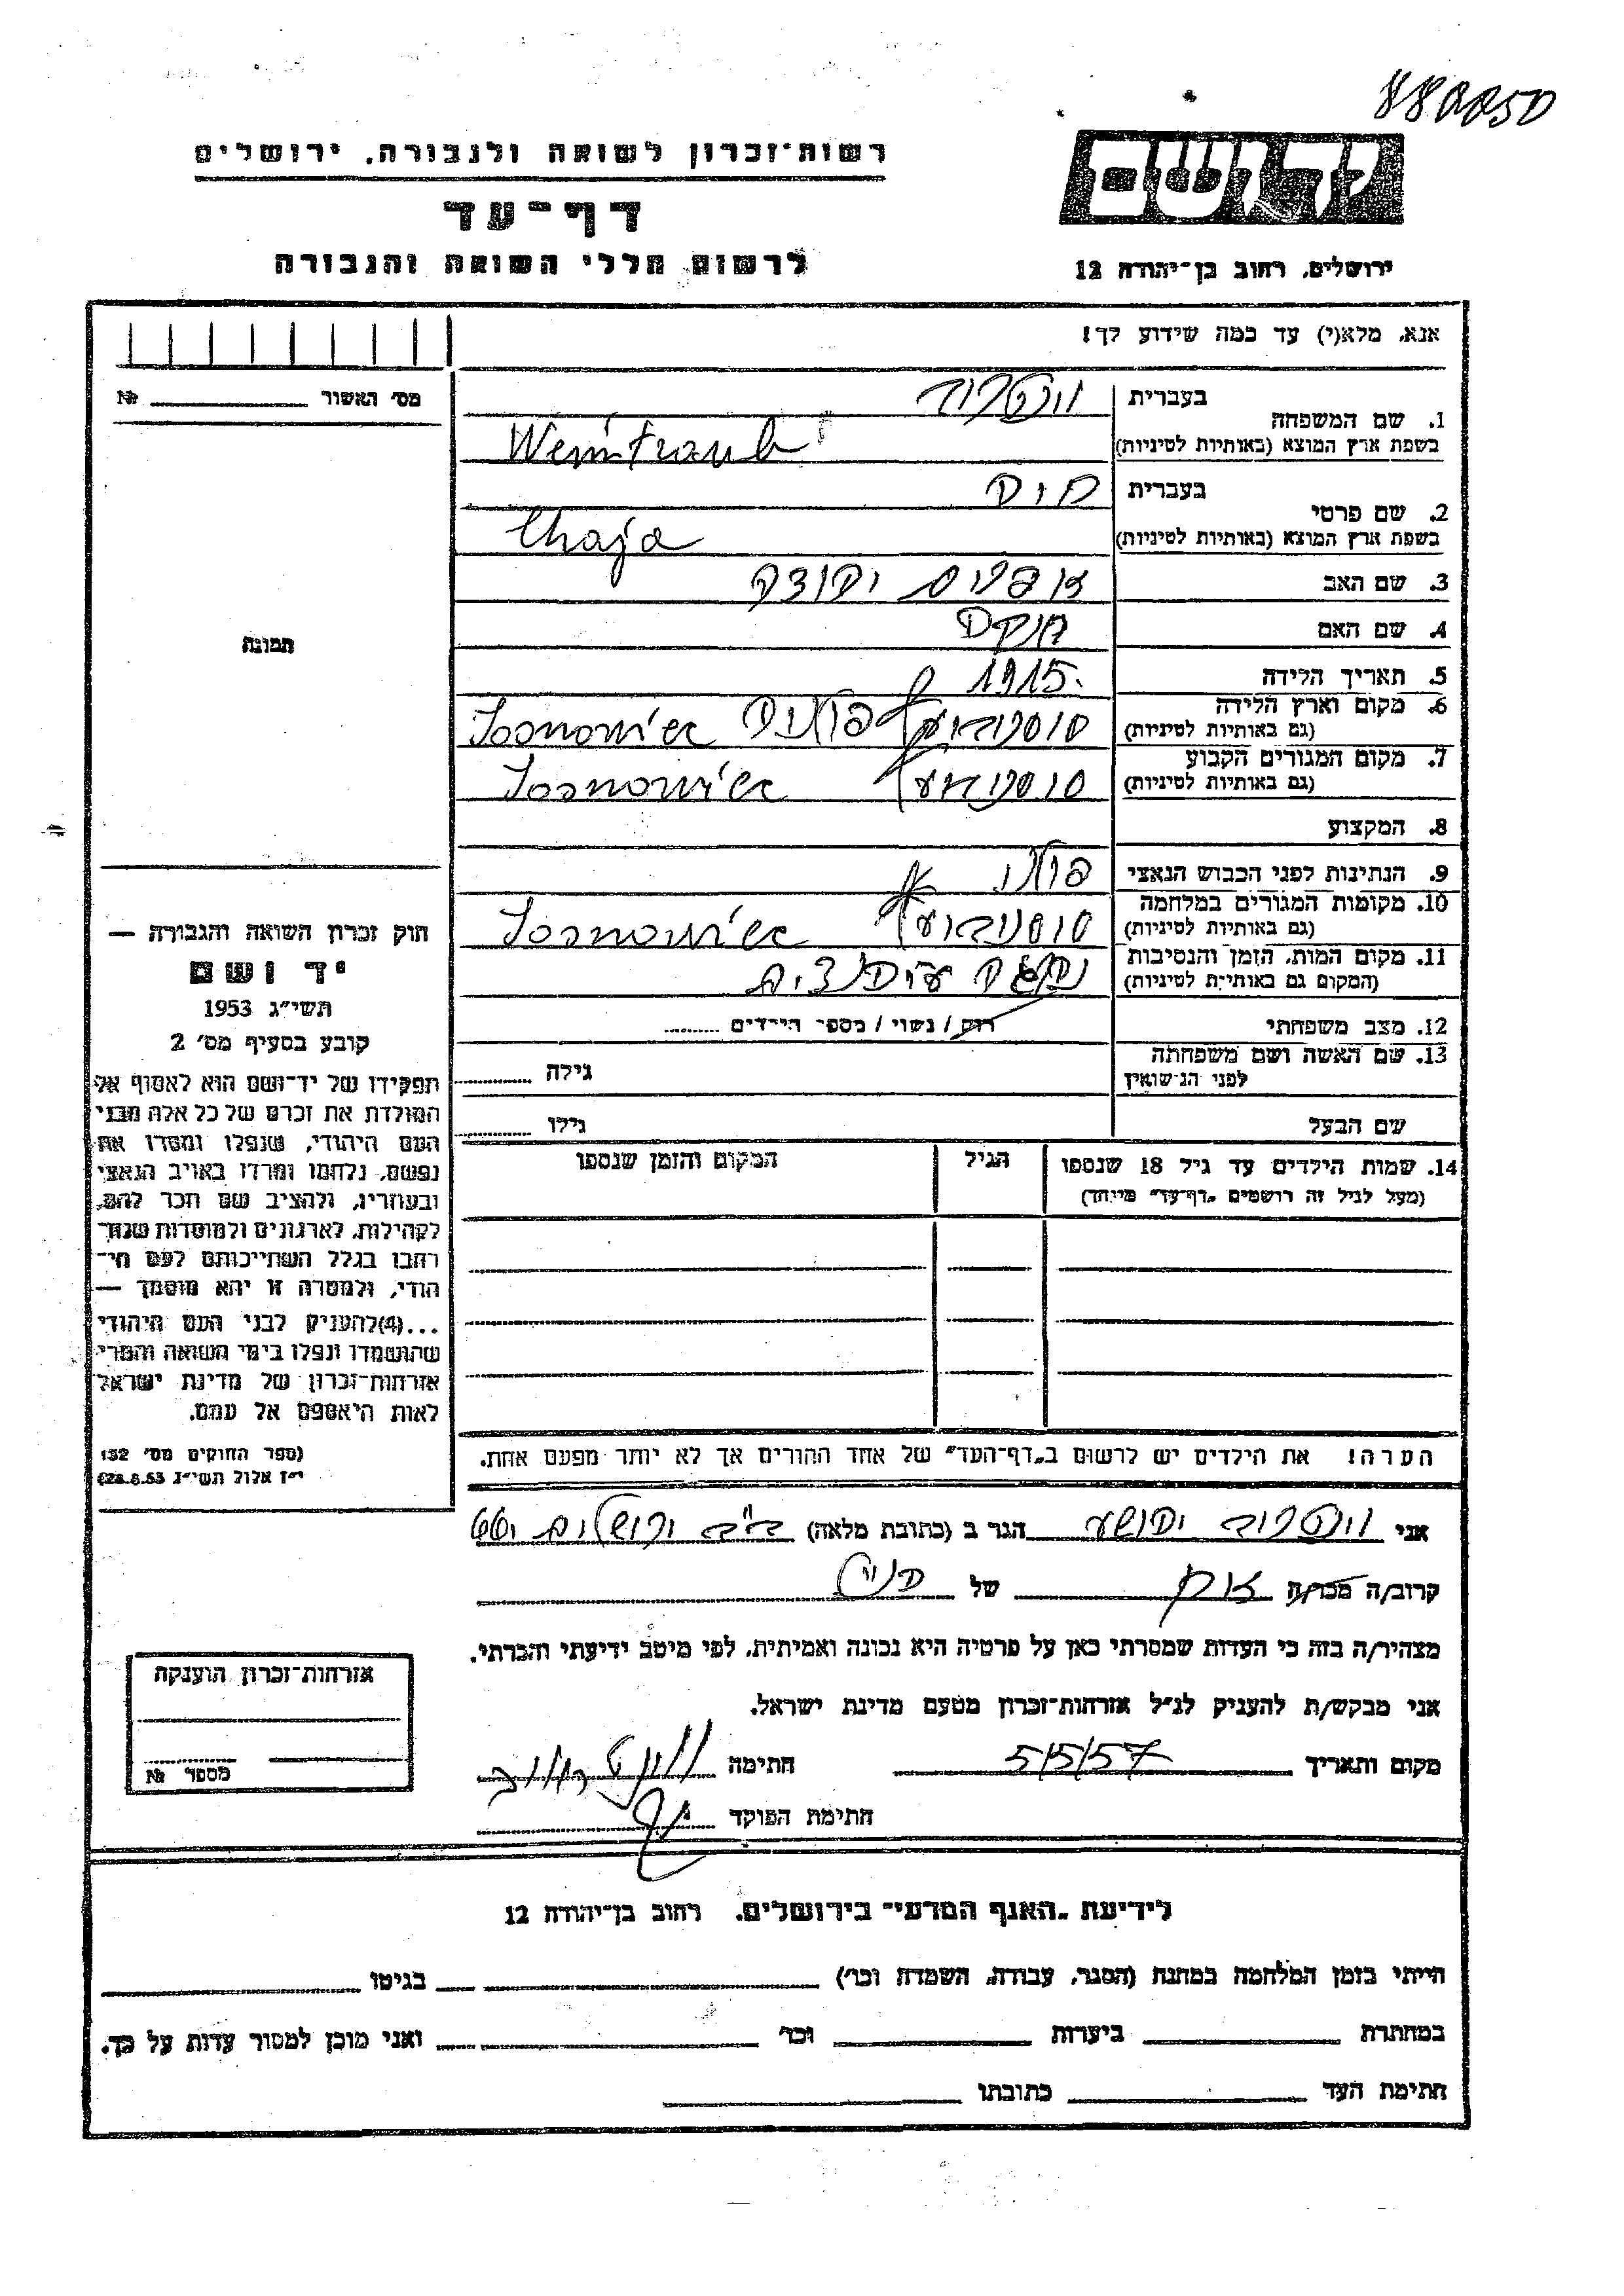 880050
רשות־זכרון לשואה ולגבורה, ירושלים
יד ושם
דף־עד
לרשום חללי השואה והגבורה
ירושלים, רחוב בן־יהודה 12
אנא, מלא(י) עד כמה שידוע לך!
מס׳ האשור № 
1. שם המשפחה
בעברית
בשפת ארץ המוצא (באותיות לטיניות) Weintraub
2. שם פרטי
בעברית חיה
בשפת ארץ המוצא (באותיות לטיניות) Chaja
3. שם האב אפרים
4. שם האם
תמונה
5. תאריך הלידה 1915.
6. מקום וארץ הלידה
(גם באותיות לטיניות) פולניה Sosnowiec
7. מקום המגורים הקבוע
(גם באותיות לטיניות) Sosnowiec
8. המקצוע
9. הנתינות לפני הכבוש הנאצי
10. מקומות המגורים במלחמה
(גם באותיות לטיניות) Sosnowiec
11. מקום המות, הזמן והנסיבות
(המקום גם באותיות לטיניות)
12. מצב משפחתי רוק / נשוי / מספר הילדים
13. שם האשה ושם משפחתה
לפני הנישואין גילה
שם הבעל גילו
14. שמות הילדים עד גיל 18 שנספו הגיל המקום והזמן שנספו
(מעל לגיל זה רושמים „דף־עד״ מיוחד)
הערה! את הילדים יש לרשום ב„דף־העד״ של אחד ההורים אך לא יותר מפעם אחת.
חוק זכרון השואה והגבורה —
יד ושם
תשי״ג 1953
קובע בסעיף מס׳ 2
תפקידו של יד־ושם הוא לאסוף אל
המולדת את זכרם של כל אלה מבני
העם היהודי, שנפלו ומסרו את
נפשם, נלחמו ומרדו באויב הנאצי
ובעוזריו, ולהציב שם וזכר להם,
לקהילות, לארגונים ולמוסדות שנח־
רבו בגלל השתייכותם לעם הי־
הודי, ולמטרה זו יהא מוסמך —
...(4)להעניק לבני העם היהודי
שהושמדו ונפלו בימי השואה והמרי
אזרחות־זכרון של מדינת ישראל
לאות היאספם אל עמם.
(ספר החוקים מס׳ 132
י״ז אלול תשי״ג 28.8.53)
אני יהושע הגר ב (כתובת מלאה) ירושלים
קרוב/ה מכר/ה אח של הנ״ל
מצהיר/ה בזה כי העדות שמסרתי כאן על פרטיה היא נכונה ואמיתית, לפי מיטב ידיעתי והכרתי.
אני מבקש/ת להעניק לנ״ל אזרחות־זכרון מטעם מדינת ישראל.
מקום ותאריך 5/5/57 חתימה
חתימת הפוקד
אזרחות־זכרון הוענקה
מספר №
לידיעת „האגף המדעי״ בירושלים, רחוב בן־יהודה 12
הייתי בזמן המלחמה במחנה (הסגר, עבודה, השמדה וכו׳) בגיטו
במחתרת ביערות וכו׳ ואני מוכן למסור עדות על כך.
חתימת העד כתובתו